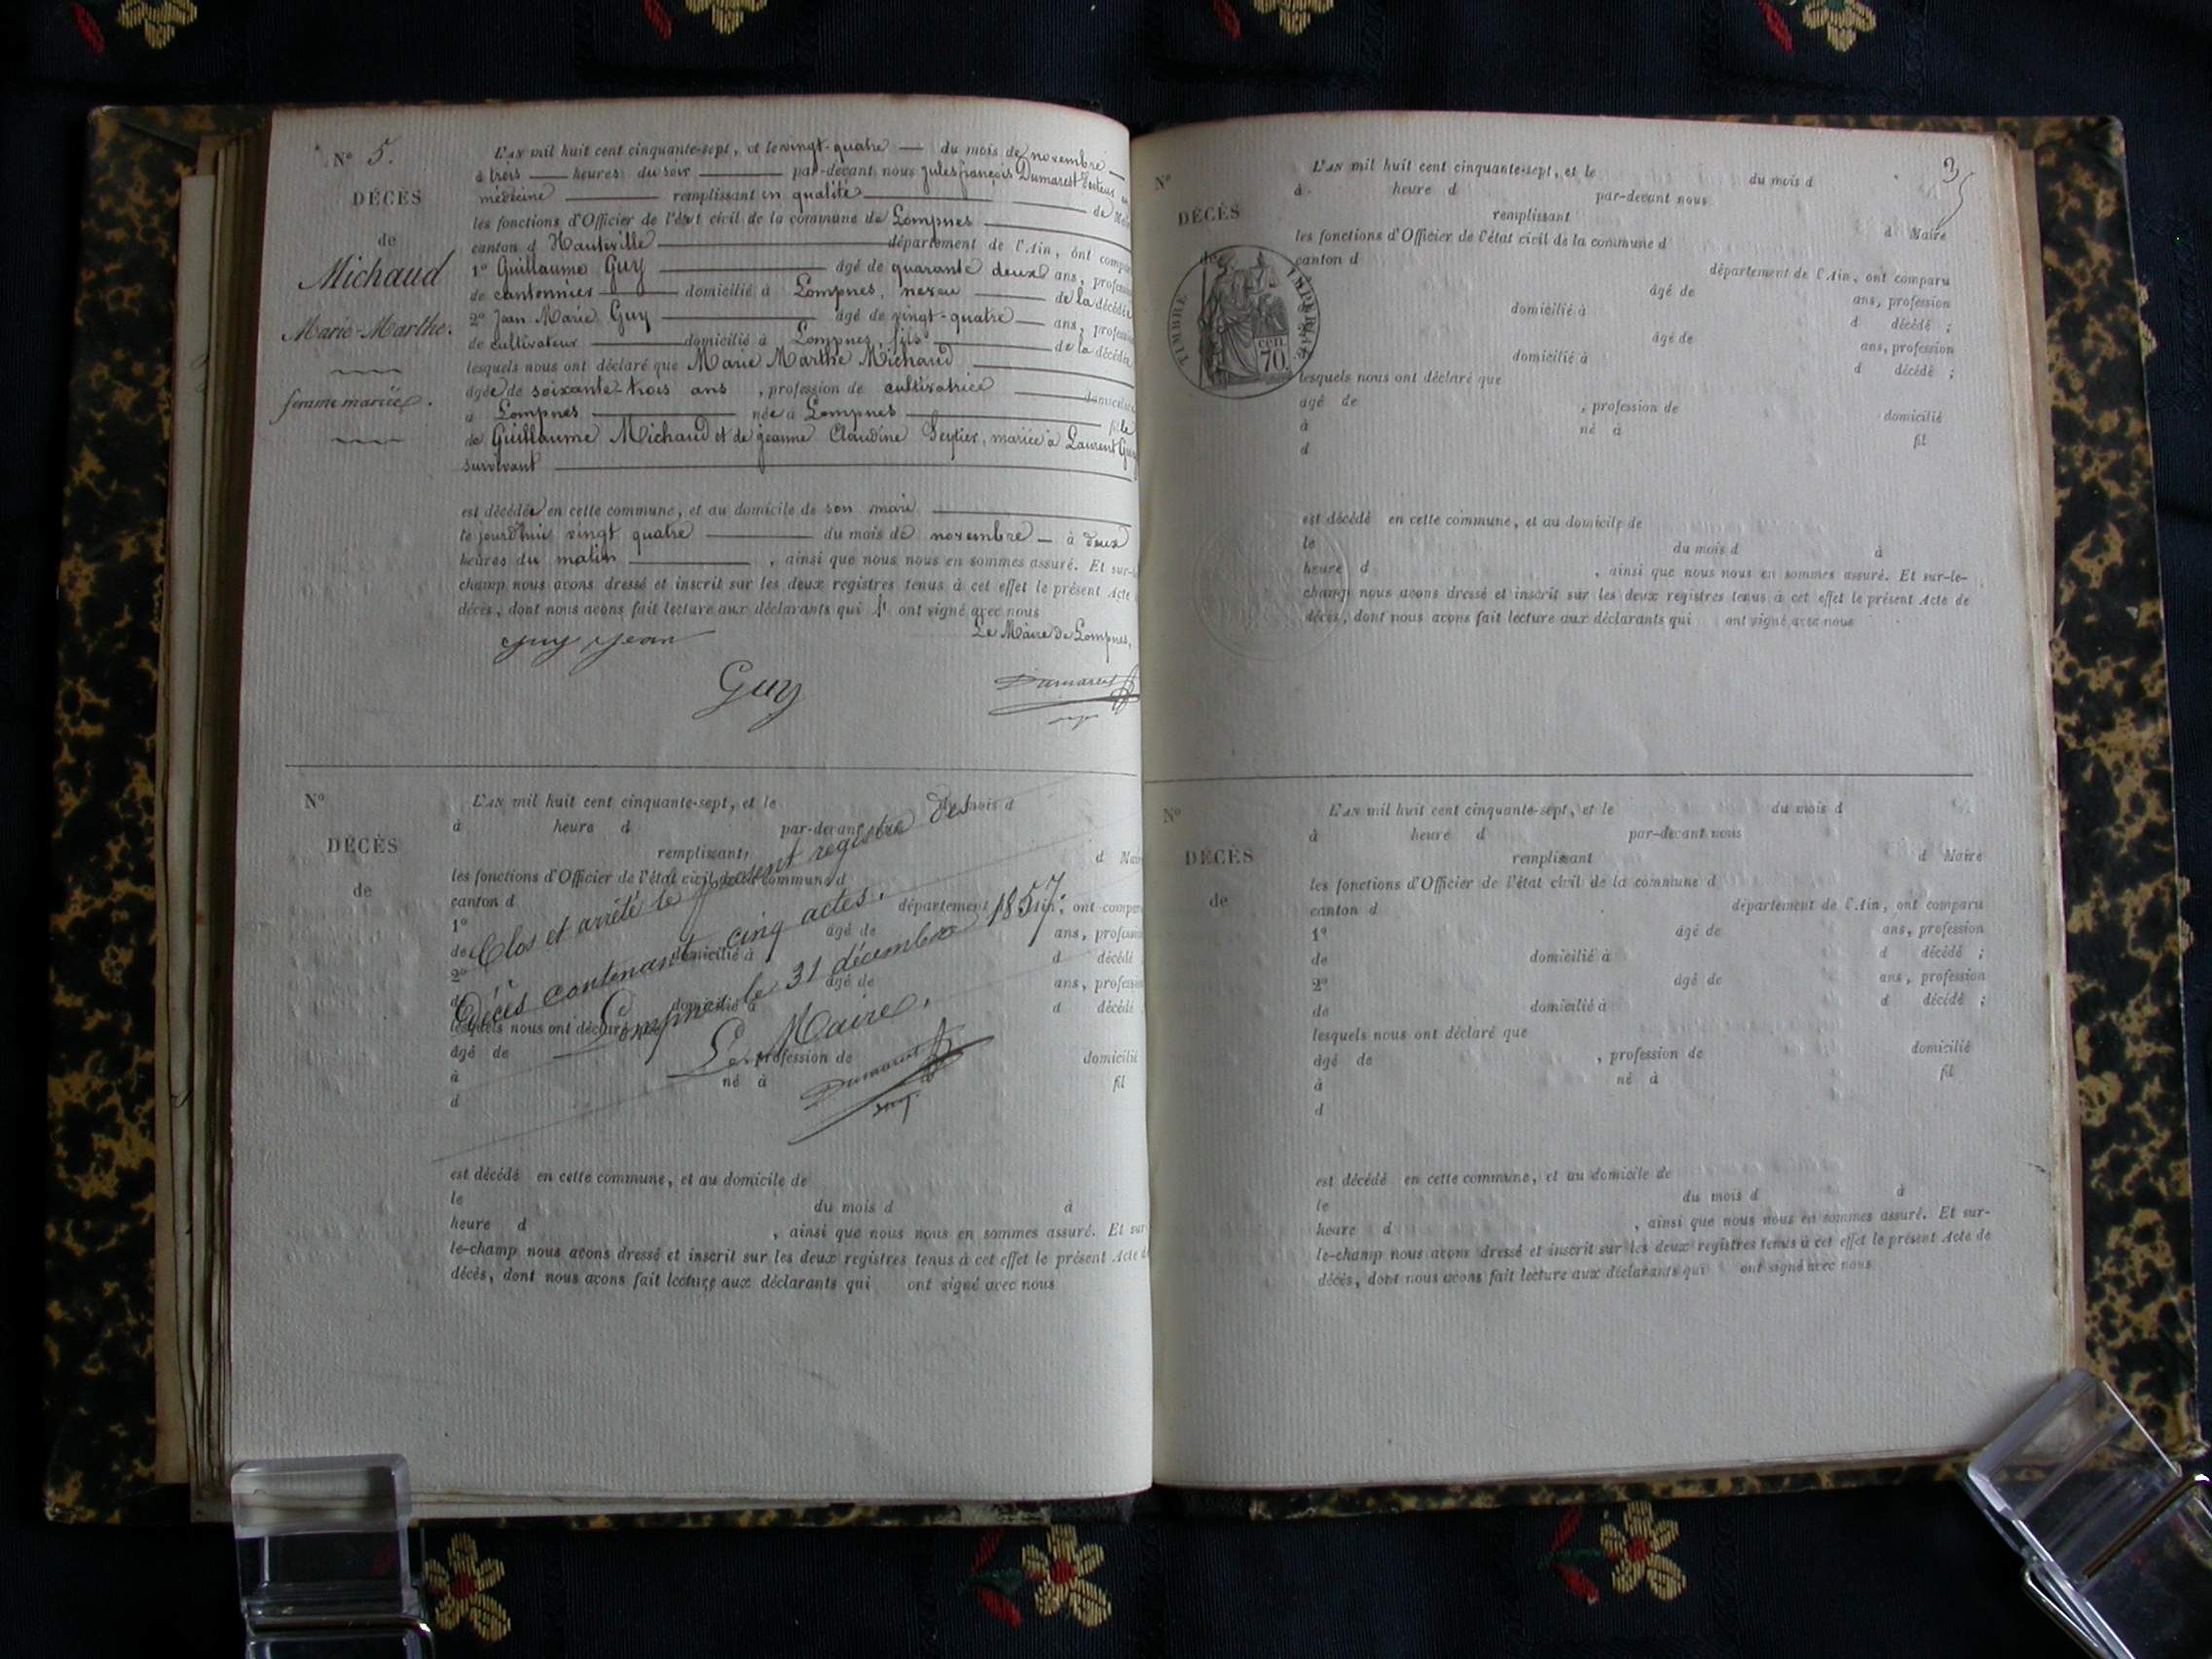 N° 5.
DÉCÈS
de
Michaud
Marie-Marthe.
femme mariée.
L'AN mil huit cent cinquante-sept, et le vingt-quatre du mois de novembre
à trois heures du soir par-devant nous Jules françois Dumarest Docteur en
médecine remplissant en qualité de
les fonctions d'Officier de l'état civil de la commune de Lompnes
canton d Hauteville département de l'Ain, ont
1° Guillaume Guy âgé de quarante deux ans,
de cantonnier domicilié à Lompnes, neveu de la décédée
2° Jean Marie Guy âgé de vingt-quatre ans,
de cultivateur domicilié à Lompnes, fils de la décédée
lesquels nous ont déclaré que Marie Marthe Michaud
âgée de soixante-trois ans, profession de cultivatrice
à Lompnes née à Lompnes fille
de Guillaume Michaud et de jeanne Claudine Seytier, mariée à Laurent Guy
survivant
est décédée en cette commune, et au domicile de son mari
le jourd'hui vingt quatre du mois de novembre à deux
heures du matin, ainsi que nous nous en sommes assuré. Et sur-le-
champ nous avons dressé et inscrit sur les deux registres tenus à cet effet le présent Acte
décès, dont nous avons fait lecture aux déclarants qui ont signé avec nous
Le Maire de Lompnes,
Guy Jean
Guy
Dumarest
N°
DÉCÈS
de
L'AN mil huit cent cinquante-sept, et le du mois d
à heure d par-devant
remplissant
d
les fonctions d'Officier de l'état civil de la commune d
canton d
département de l'Ain, ont
1° âgé de ans,
de domicilié à d décédé
2° âgé de ans,
d domicilié à d décédé
lesquels nous ont déclaré que
âgé de , profession de domicilié
à né à fil
d
Clos et arrêté le présent registre des
Décès contenant cinq actes.
Lompnes le 31 décembre 1857.
Le Maire,
Dumarest
est décédé en cette commune, et au domicile de
le du mois d à
heure d , ainsi que nous nous en sommes assuré. Et sur
le-champ nous avons dressé et inscrit sur les deux registres tenus à cet effet le présent Acte d
décès, dont nous avons fait lecture aux déclarants qui ont signé avec nous
3
N°
DÉCÈS
de
TIMBRE IMPÉRIAL
cen. 70.
L'AN mil huit cent cinquante-sept, et le du mois d
à heure d par-devant nous
remplissant d Maire
les fonctions d'Officier de l'état civil de la commune d
canton d département de l'Ain, ont comparu
âgé de ans, profession
domicilié à d décédé ;
âgé de ans, profession
domicilié à d décédé ;
lesquels nous ont déclaré que
âgé de , profession de domicilié
à né à fil
d
est décédé en cette commune, et au domicile de
le du mois d à
heure d , ainsi que nous nous en sommes assuré. Et sur-le-
champ nous avons dressé et inscrit sur les deux registres tenus à cet effet le présent Acte de
décès, dont nous avons fait lecture aux déclarants qui ont signé avec nous
N°
DÉCÈS
de
L'AN mil huit cent cinquante-sept, et le du mois d
à heure d par-devant nous
remplissant d Maire
les fonctions d'Officier de l'état civil de la commune d
canton d département de l'Ain, ont comparu
1° âgé de ans, profession
de domicilié à d décédé ;
2° âgé de ans, profession
de domicilié à d décédé ;
lesquels nous ont déclaré que
âgé de , profession de domicilié
à né à fil
d
est décédé en cette commune, et au domicile de
le du mois d à
heure d , ainsi que nous nous en sommes assuré. Et sur-
le-champ nous avons dressé et inscrit sur les deux registres tenus à cet effet le présent Acte de
décès, dont nous avons fait lecture aux déclarants qui ont signé avec nous